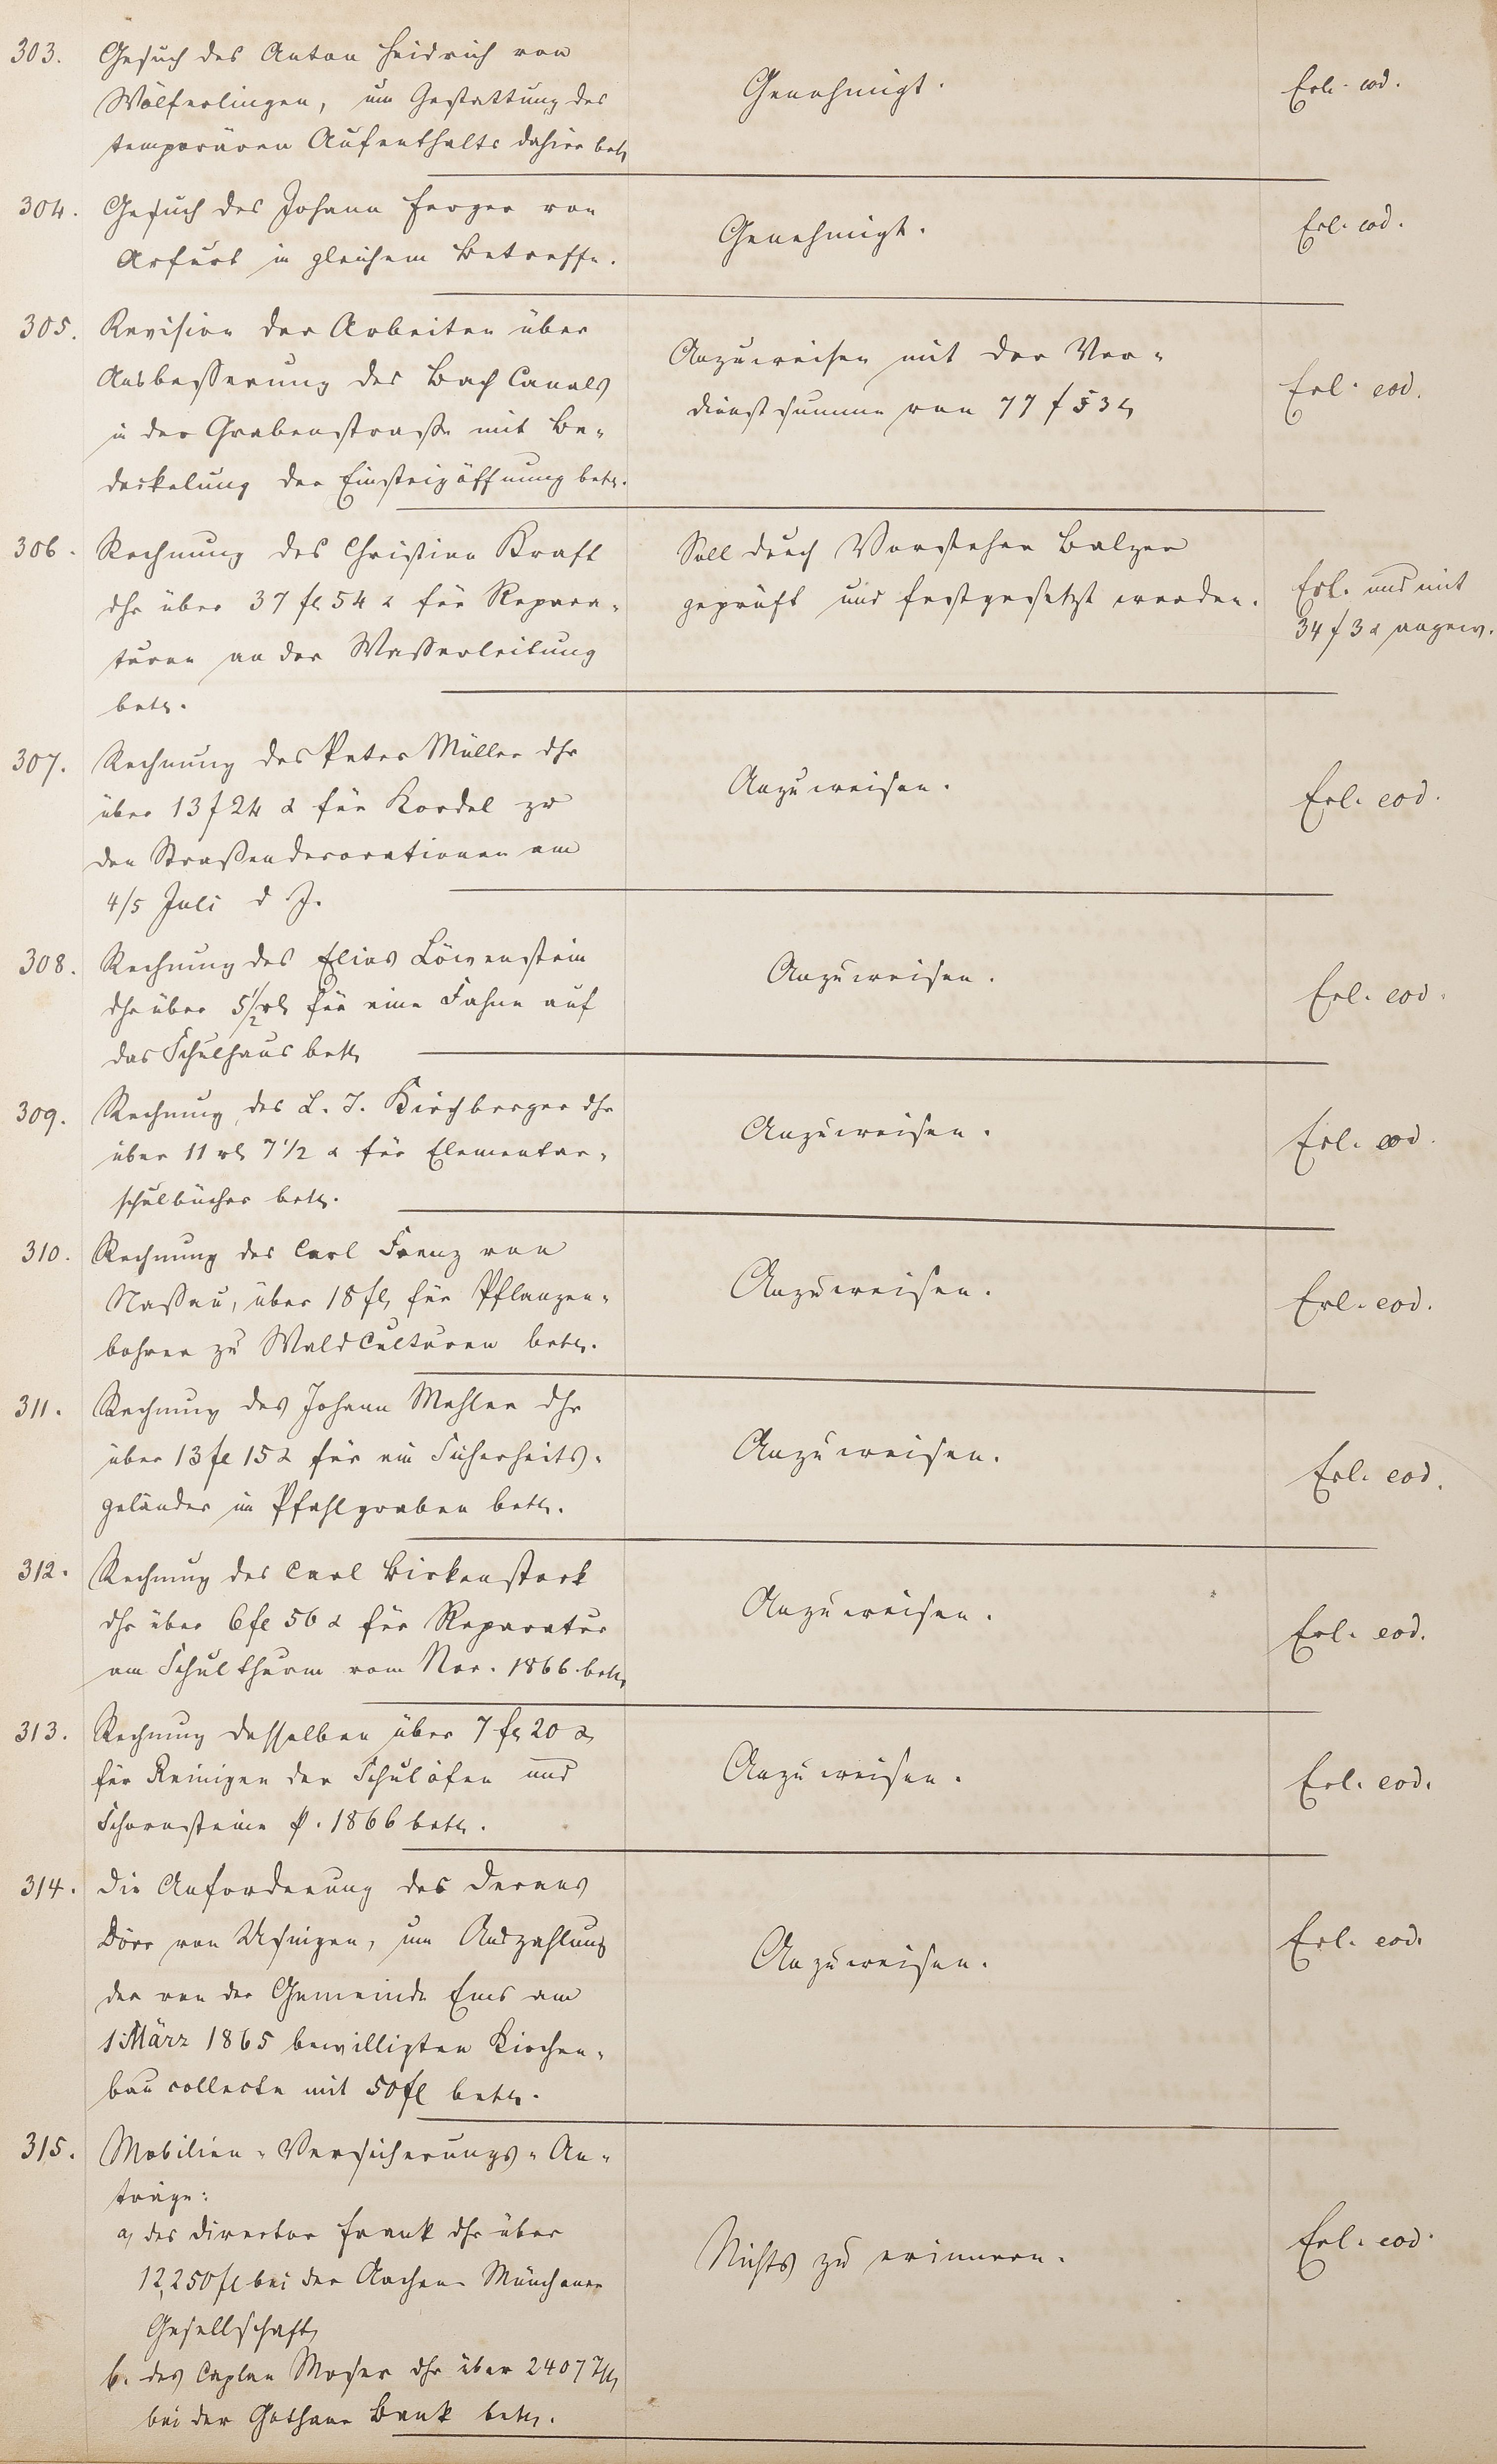 303. Gesuch des Anton Heidrich von
Wölferlingen, um Gestattung des
temporären Aufenthalts dahier betr
Genehmigt.
Erl. eod.
304. Gesuch des Johann Ferger von
Arfurt in gleichem Betreffe.
Genehmigt.
Erl. eod.
305. Revision der Arbeiten über
Ausbesserung des Bach Canals
in der Grabenstraße mit Be-
deckelung der Einsteigöffnung betr.
Anzuweisen mit der Ver-
dienstsumme von 77 f 53
Erl. eod.
306. Rechnung des Christian Kraft
dhr über 37 fl 54 x für Repara-
turen an der Wasserleitung
betr.
Soll durch Vorsteher Balzer
geprüft und festgesetzt werden.
Erl. und mit
34 f 3 x angew.
307. Rechnung des Peter Müller dhr
über 13 f 24 x für Kordel zu
den Straßendecorationen am
4/5 Juli d J.
Anzuweisen.
Erl. eod.
308. Rechnung des Elias Löwenstein
dhr über 5 1/2 rl für eine Fahne auf
das Schulhaus betr
Anzuweisen.
Erl. eod.
309. Rechnung des L. J. Kirchberger dhr
über 11 rl 7 1/2 x für Elementar-
schulbücher betr.
Anzuweisen.
Erl. eod.
310. Rechnung des Carl Frenz von
Nassau, über 18 fl für Pflanzen-
bohrer zu Wald Culturen betr.
Anzuweisen.
Erl. eod.
311. Rechnung des Johann Mehler dhr
über 13 fl 15 x für ein Sicherheits-
geländer im Pfahlgraben betr.
Anzuweisen.
Erl. eod.
312. Rechnung des Carl Birkenstock
dhr über 6 fl 56 x für Reparatur
am Schulthurm vom Nov. 1866 betr
Anzuweisen.
Erl. eod.
313. Rechnung desselben über 7 fl 20 x
für Reinigen der Schulöfen und
Schornsteine p. 1866 betr.
Anzuweisen.
Erl. eod.
314. Die Anforderung des Decans
Dörr von Usingen, um Auszahlung
der von der Gemeinde Ems am
1. März 1865 bewilligten Kirchen-
bau collecte mit 50 fl betr.
Anzuweisen.
Erl. eod.
315. Mobilien-Versicherungs-An-
träge:
a, des Director Frank dhr über
12,250 fl bei der Aachen Münchener
Gesellschaft,
b. des Caplan Moser dhr über 2407
bei der Gothaer Bank betr.
Nichts zu erinnern.
Erl. eod.